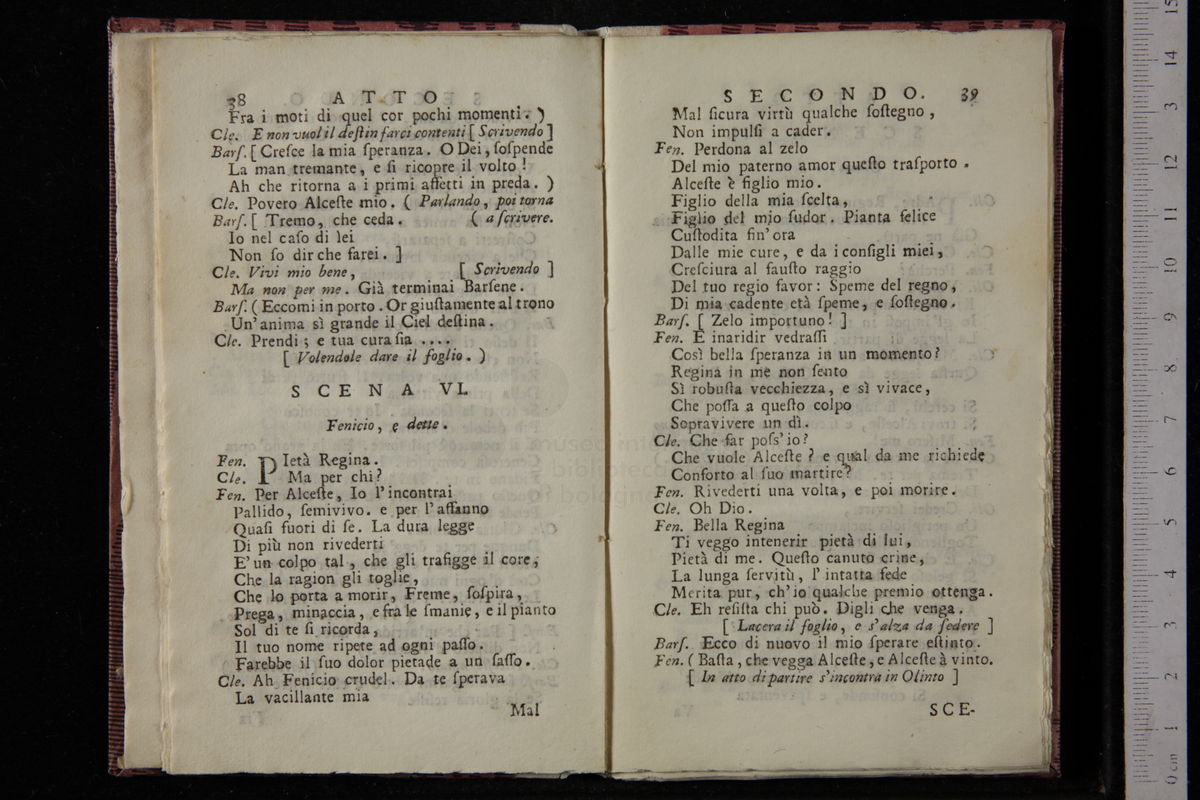 38 ATTO
Fra i moti di quel cor pochi momenti. )
Cle. E non vuol il deſtin farci contenti [ Scrivendo ]
Barſ. [ Creſce la mia ſperanza. O Dei, ſoſpende
La man tremante, e ſi ricopre il volto !
Ah che ritorna a i primi affetti in preda. )
Cle. Povero Alceſte mio. ( Parlando, poi torna
Barſ. [ Tremo, che ceda. ( a ſcrivere.
Io nel caſo di lei
Non ſo dir che farei. ]
Cle. Vivi mio bene, [ Scrivendo ]
Ma non per me. Già terminai Barſene.
Barſ. ( Eccomi in porto. Or giuſtamente al trono
Un' anima sì grande il Ciel deſtina.
Cle. Prendi ; e tua cura ſia ....
[ Volendole dare il foglio. )
SCENA VI.
Fenicio, e dette.
Fen. PIetà Regina.
Cle. Ma per chi?
Fen. Per Alceſte, Io l'incontrai
Pallido, ſemivivo. e per l'affanno
Quaſi fuori di ſe. La dura legge
Di più non rivederti
E' un colpo tal, che gli trafigge il core,
Che la ragion gli toglie,
Che lo porta a morir, Freme, ſoſpira,
Prega, minaccia, e fra le ſmanie, e il pianto
Sol di te ſi ricorda,
Il tuo nome ripete ad ogni paſſo.
Farebbe il ſuo dolor pietade a un ſaſſo.
Cle. Ah Fenicio crudel. Da te ſperava
La vacillante mia
Mal
SECONDO. 39
Mal ſicura virtù qualche ſoſtegno,
Non impulſi a cader.
Fen. Perdona al zelo
Del mio paterno amor queſto traſporto.
Alceſte è figlio mio.
Figlio della mia ſcelta,
Figlio del mio ſudor. Pianta felice
Cuſtodita fin' ora
Dalle mie cure, e da i conſigli miei,
Creſciura al fauſto raggio
Del tuo regio favor: Speme del regno,
Di mia cadente età ſpeme, e ſoſtegno.
Barſ. [ Zelo importuno! ]
Fen. E inaridir vedraſſi
Così bella ſperanza in un momento?
Regina in me non ſento
Sì robuſta vecchiezza, e sì vivace,
Che poſſa a queſto colpo
Sopravivere un dì.
Cle. Che far poſs' io?
Che vuole Alceſte ? e qual da me richiede
Conforto al ſuo martire?
Fen. Rivederti una volta, e poi morire.
Cle. Oh Dio.
Fen. Bella Regina
Ti veggo intenerir pietà di lui,
Pietà di me. Queſto canuto crine,
La lunga ſervitù, l' intatta fede
Merita pur, ch' io qualche premio ottenga.
Cle. Eh reſiſta chi può. Digli che venga.
[ Lacera il foglio, e s'alza da ſedere ]
Barſ. Ecco di nuovo il mio ſperare eſtinto.
Fen. ( Baſta, che vegga Alceſte, e Alceſte à vinto.
[ In atto di partire s'incontra in Olinto ]
SCE-